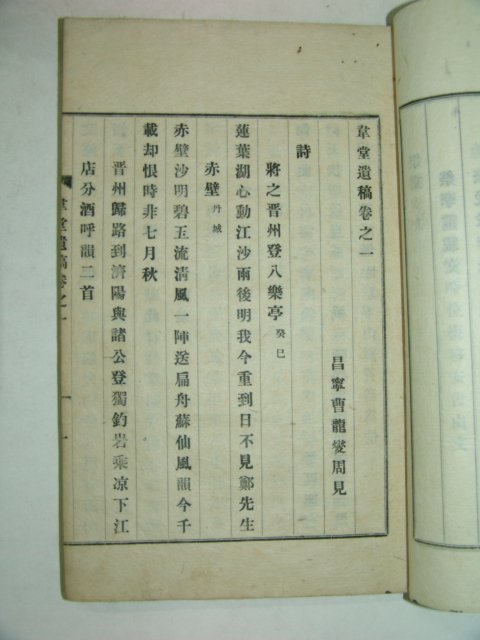 韋堂遺稿卷之一
昌寧曺龍燮周見
詩
將之晋州登八樂亭 癸巳
蓮葉湖心動江沙雨後明我今重到日不見鄭先生
赤壁 丹城
赤壁沙明碧玉流淸風一陣送扁舟蘇仙風韻今千
載却恨時非七月秋
晋州歸路到濟陽與諸公登獨釣岩乘凉下江
店分酒呼韻二首
韋堂遺稿卷之一
一